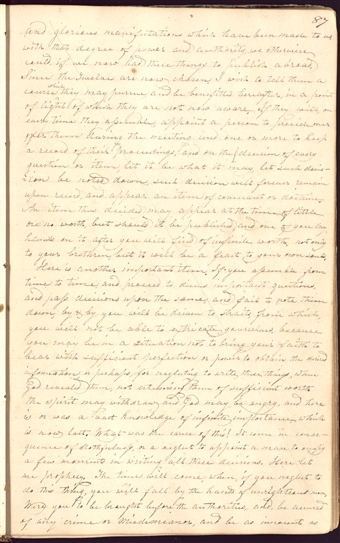 87
and glorious manifestations which have been made to us
with that degree of power and authority, we otherwise
could if we now had these things to publish abroad.
Since the Twelve are now chosen, I wish to tell them a
course they may pursue and be benefited hereafter in a point
of light of which they are not now aware. If they will on
every time they assemble, appoint a person to preside over
them during the meeting, and one or more to keep
a record of their proceedings, and on the decision of every
question or item, let it be what it may, let such decis-
ion be noted down, such decision will forever remain
upon record, and appear an item of covenant or doctrine.
An item thus decided may appear at the time of little
or no worth, but should it be published and one of you lay
hands on it after, you will find it of infinite worth, not only
to your brethren, but it will be a feast to your own souls.
Here is another important item. If you assemble from
time to time, and proceed to discuss important questions,
and pass decisions upon the same, and fail to note them
down, by & by you will be driven to straits from which
you will not be able to extricate yourselves, because
you may be in a situation not to bring your faith to
bear with sufficient perfection or power to obtain the desired
information, or perhaps for neglecting to write these things when
God revealed them, not esteeming them of sufficient worth
the spirit may withdraw, and God may be angry, and there
is or was a vast knowledge of infinite importance, which
is now lost. What was the cause of this? It came in conse-
quence of slothfulness, or a neglect to appoint a man to occupy
a few moments in writing all these decisions. Here let
me prophecy. The time will come when if you neglect to
do this thing, you will fall by the hands of unrighteous men.
Were you to be brought before the authorities, and be accused
of any crime or misdemeanor, and be as innocent as